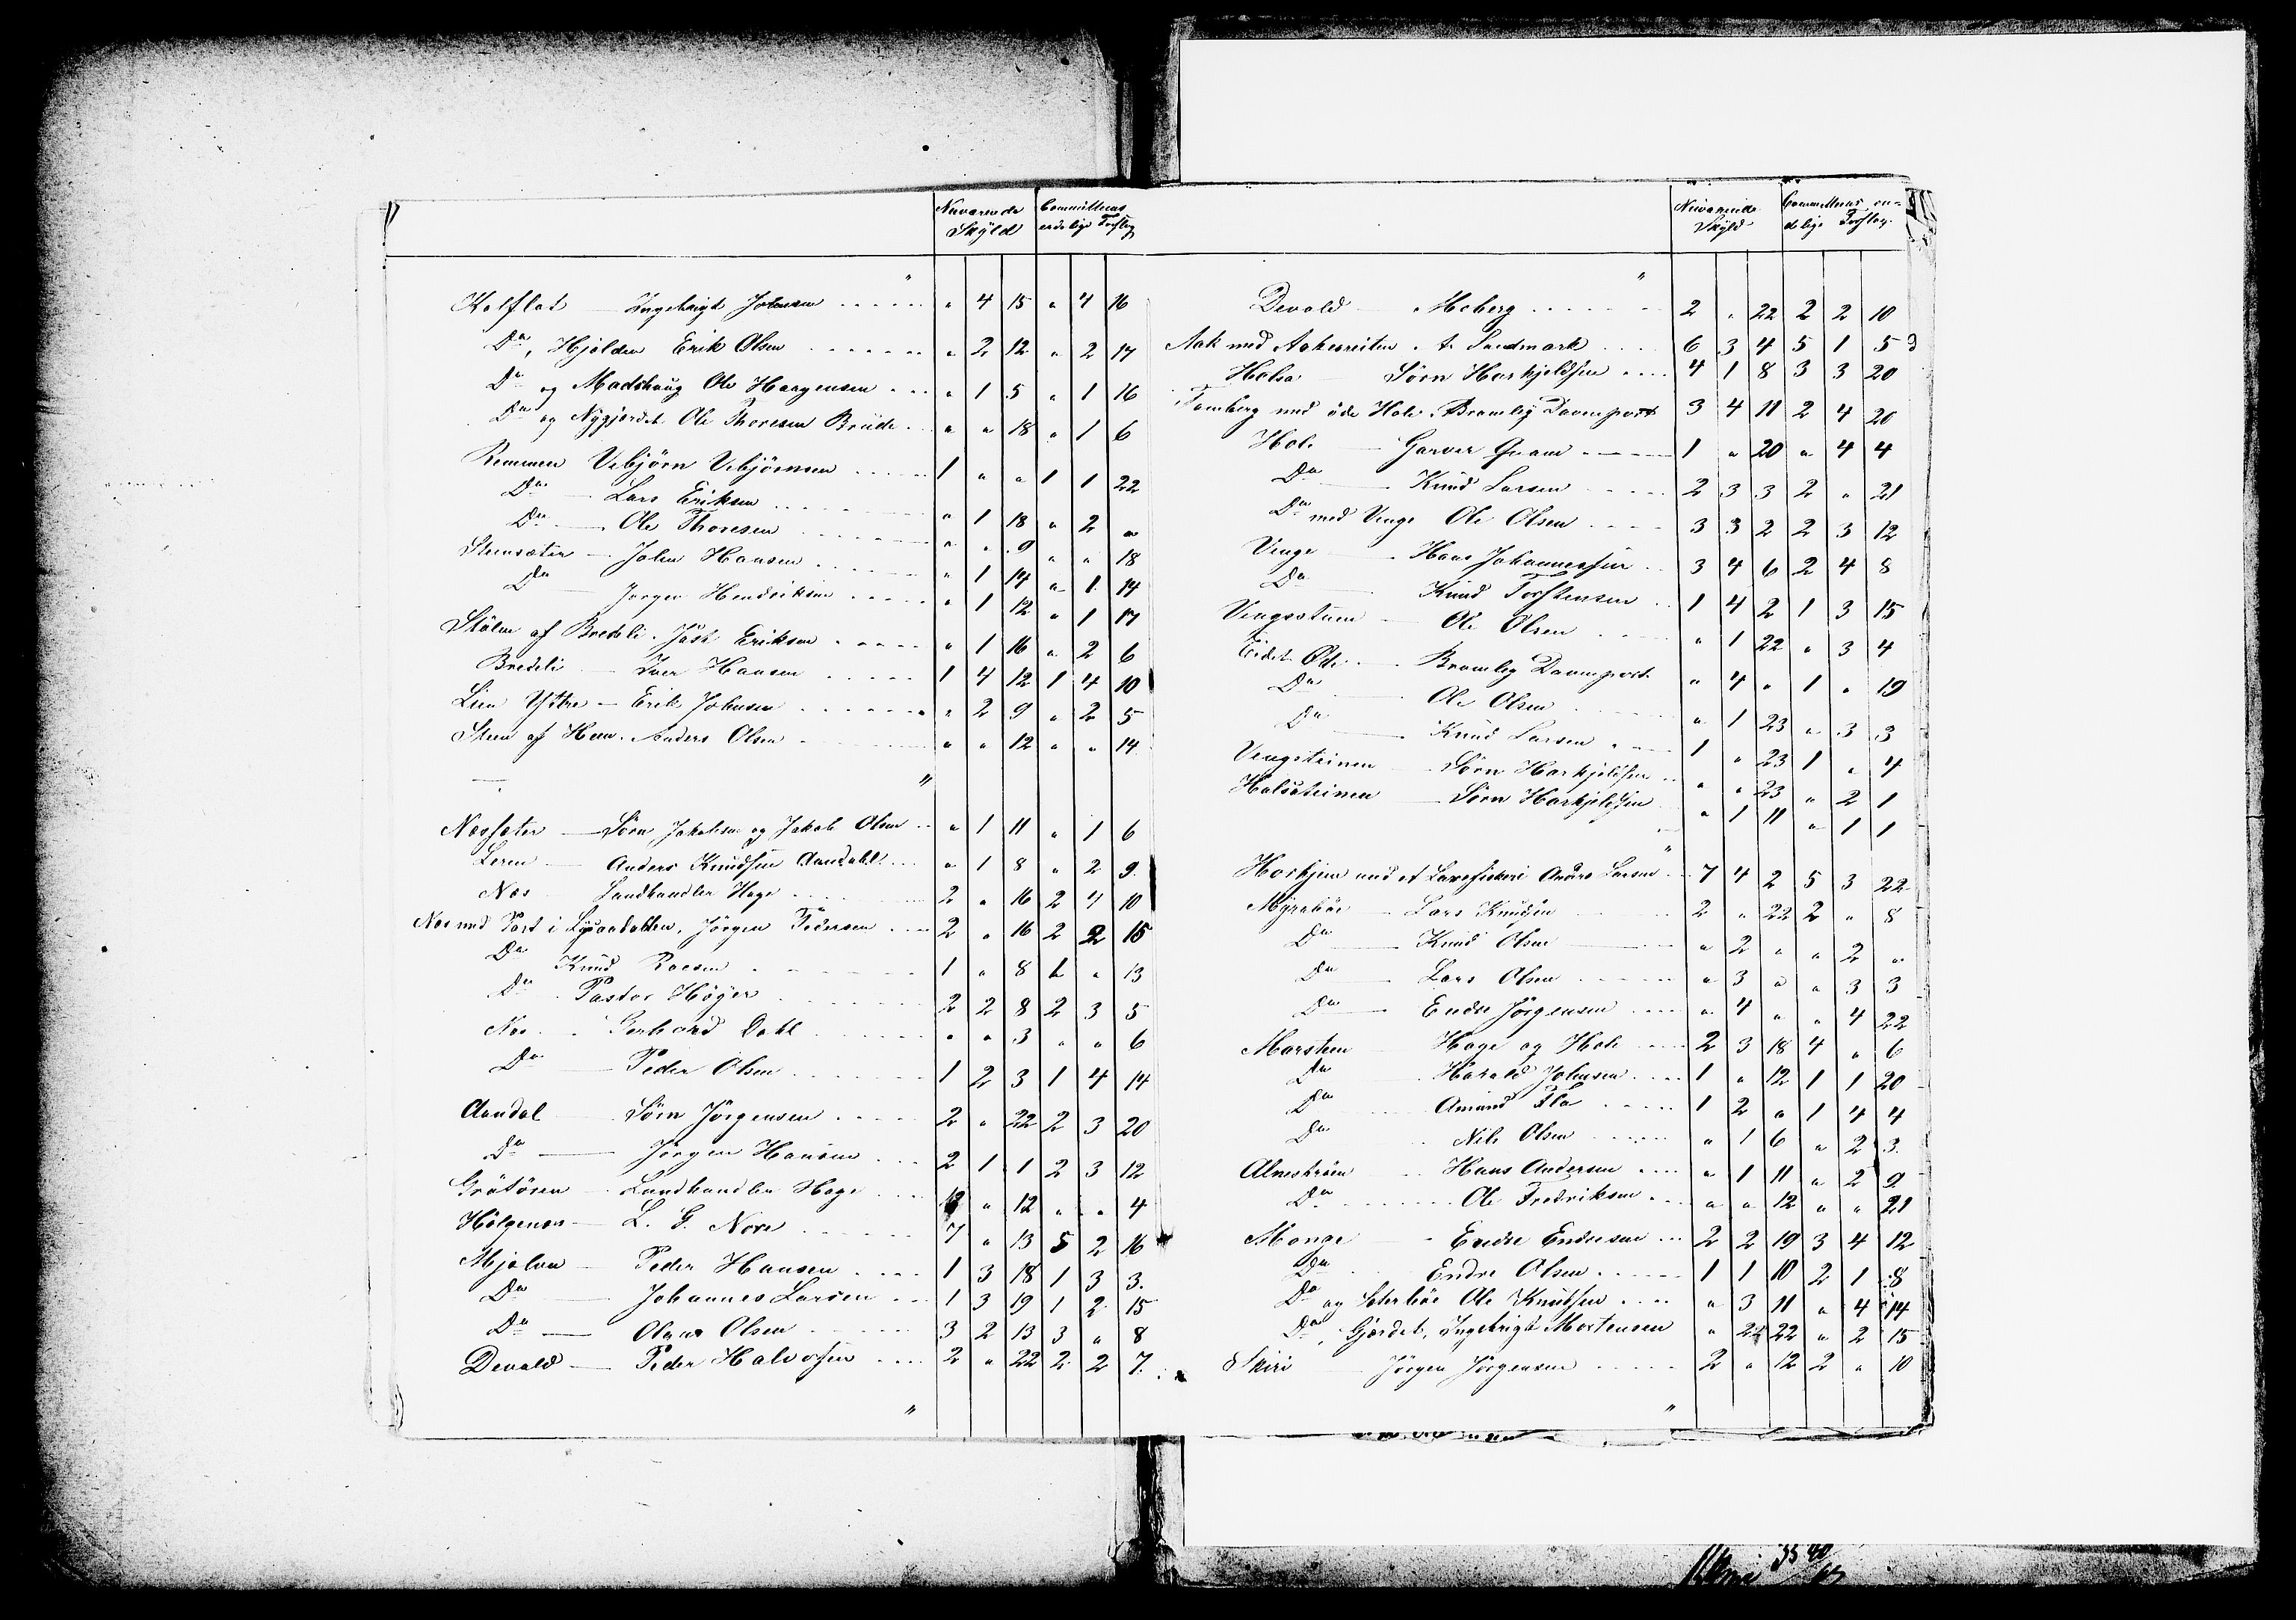 Nuværende Committeens
Skyld endelige Forslag
"
Kalflat — Ingebrigt Johnsen " 4 15 " 4 16
Do, Hjelden Erik Olsen " 2 12 " 2 17
Do og Madshaug Ole Haagensen " 1 5 " 1 16
Do og Nygjerdet Ole Thoresen Brude " " 18 " 1 6
Remmen Vebjörn Vebjörnsen 1 " " 1 1 22
Do — Lars Eriksen " 1 18 " 2 "
Do — Ole Thoresen " " 9 " " 18
Stensæter — John Hansen " 1 14 " 1 14
Do — Jørgen Hendriksen " 1 12 " 1 17
Stölen af Bredeli. Jost Eriksen " 1 16 " 2 6
Bredeli — Iver Hansen 1 4 12 1 4 10
Lien Yttre — Erik Johnsen " 2 9 " 2 5
Steen af Hen. Anders Olsen " " 12 " " 14
"
Næssæter — Sörn Jakobsen og Jakob Olsen " 1 11 " 1 6
Leren — Anders Knudsen Aandahl " 1 8 " 2 9
Næs Landhandler Hage 2 " 16 2 4 10
Næs med Part i Lysaadalen, Jörgen Pedersen 2 " 16 2 2 15
Do Knud Roesen 1 " 8 1 " 13
Do Pastor Höyer 2 2 8 2 3 5
Næs Gerhard Dahl " " 3 " " 6
Do — Peder Olsen 1 2 3 1 4 14
Aandal Sörn Jörgensen 2 " 22 2 3 20
Do — Jörgen Hansen 2 1 1 2 3 12
Grötören Landhandler Hage " 12 " " 4
Holgenæs — L. G. Nore 7 " 13 5 2 16
Mjelva — Peder Hansen 1 3 18 1 3 3
Do — Johannes Larsen 1 3 19 1 2 15
Do — Olaus Olsen 3 2 13 3 " 8
Devold — Peder Halvorsen 2 " 22 2 2 7
"
Nuværende Committeens en-
Skyld delige Forslag
"
Devold — Moberg 2 " 22 2 2 10
Aak med Aakesreiten A. Landmark 6 3 4 5 1 5
Halsa Sörn Harkjeldsen 4 1 8 3 3 20
Fomberg med öde Hole. Bromley Davenport 3 4 11 2 4 20
Hole — Garver Gram 1 " 20 " 4 4
Do — Knud Larsen 2 3 3 2 " 21
Do med Venge Ole Olsen 3 3 2 2 3 12
Venge — Hans Johannessen 3 4 6 2 4 8
Do Knud Torstensen 1 4 2 1 3 15
Vengestuen — Ole Olsen " 1 22 " 3 4
Eidet Öde — Bromley Davenport " 4 " 1 " 19
Do Ole Olsen " 1 23 " 3 3
Do — Knud Larsen 1 " 23 1 " 4
Vengsteinen Sörn Harkjeldsen " " 23 " 2 1
Halsateinen — Sörn Harkjeldsen " 1 11 " 1 1
"
Horhjem med et Laxefiskeri Anders Larsen 7 4 2 5 3 22
Myreböe — Lars Knudsen 2 " 22 2 " 8
Do — Knud Olsen " 2 " " 2 "
Do — Lars Olsen " 3 " " 3 3
Do — Endre Jörgensen " 4 " " 4 22
Marstein Hage og Hole 2 3 18 4 " 6
Do Harald Johnsen 1 " 12 1 1 20
Do Amund Flo 1 2 " 1 4 4
Do Nils Olsen " 1 6 " 2 3
Alnestrøen Hans Andersen " 1 11 " 2 9
Do Ole Fredriksen " " 12 " " 21
Monge Endre Endresen 2 2 19 3 4 12
Do Endre Olsen 1 1 10 2 1 8
Do og Sæterböe Ole Knudsen " 3 11 " 4 14
Do, Gjerdet, Ingebrigt Mortensen " 2 22 " 2 15
Skiri — Jörgen Jörgensen 2 " 12 2 " 10
"